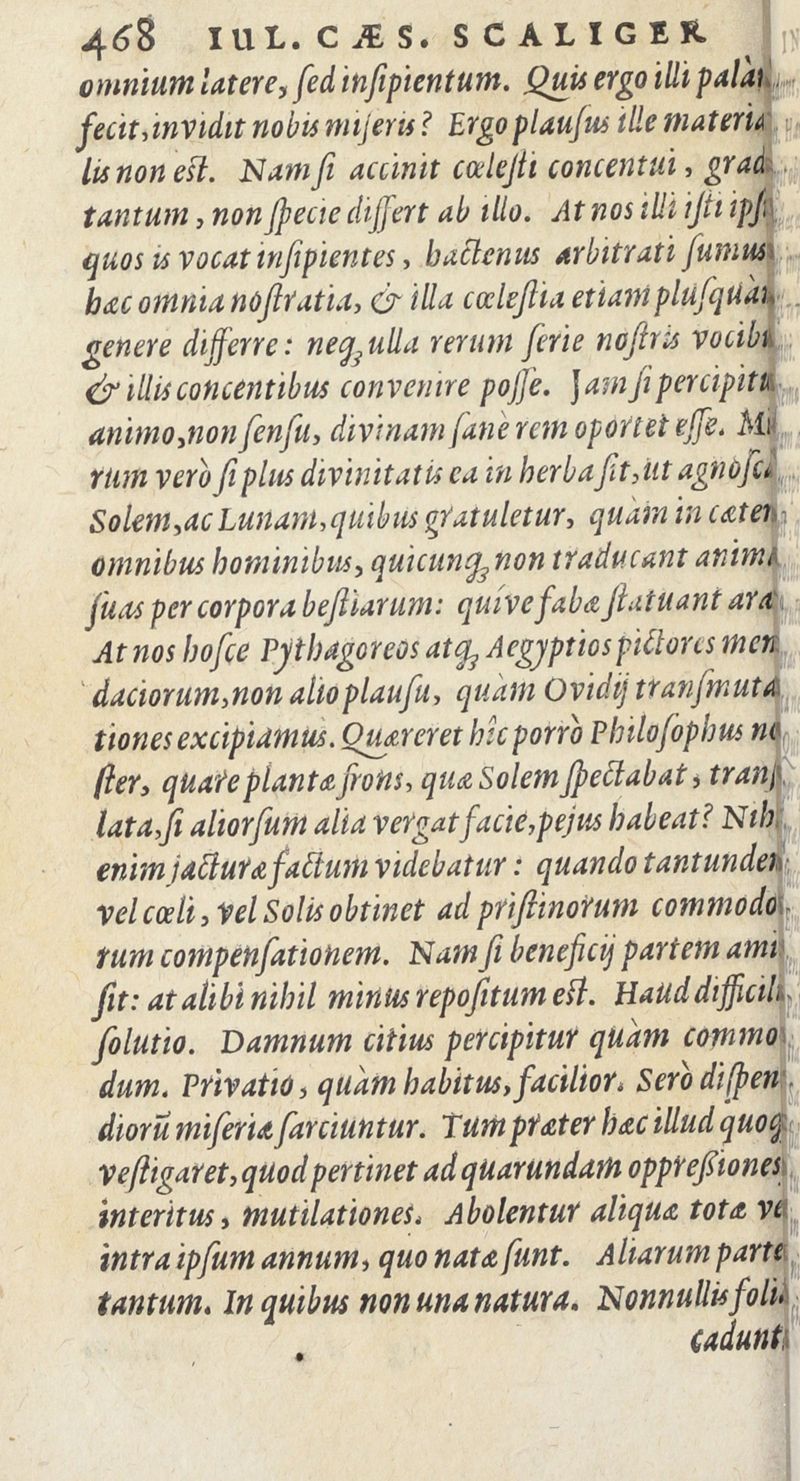 468 IUL. CÆS. SCALIGER
omnium latere, ſed inſipientum. Quis ergo illi
fecit, invidit nobis miſeris? Ergo plauſus ille materia
lis non eſt. Nam ſi accinit cœleſti concentui, grad
tantum, non ſpecie differt ab illo. At nos illi iſti ipſi
quos is vocat inſipientes, hactenus arbitrati ſumus
hæc omnia noſtratia, & illa cœleſtia etiam pluſquàm
genere differre: neq; ulla rerum ſerie noſtris vocib
& illis concentibus convenire poſſe. Jam ſi percipitu
animo, non ſenſu, divinam ſanè rem oportet eſſe. Mi
rum verò ſi plus divinitatis ea in herba ſit, ut agnoſca
Solem, ac Lunam, quibus gratuletur, quàm in cæter
omnibus hominibus, quicunq; non traducant anima
ſuas per corpora beſtiarum: quíve fabæ ſtatuant ara
At nos hoſce Pythagoreos atq; Aegyptios pictores men
daciorum, non alio plauſu, quàm Ovidij tranſmuta
tiones excipiamus. Quæreret hîc porrò Philoſophus no
ſter, quare plantæ frons, quæ Solem ſpectabat, tranſ
lata, ſi aliorſum alia vergat facie, pejus habeat? Nihil
enim jacturæ factum videbatur: quando tantunde
vel cœli, vel Solis obtinet ad priſtinorum commodo
rum compenſationem. Nam ſi beneficij partem ami
ſit: at alibi nihil minus repoſitum eſt. Haud difficili
ſolutio. Damnum citius percipitur quàm commo
dum. Privatio, quàm habitus, facilior. Serò diſpen
diorū miſeriæ ſarciuntur. Tum præter hæc illud quoq;
veſtigaret, quod pertinet ad quarundam oppreßiones
interitus, mutilationes. Abolentur aliquæ totæ ve
intra ipſum annum, quo natæ ſunt. Aliarum parte
tantum. In quibus non una natura. Nonnullis folia
cadunt